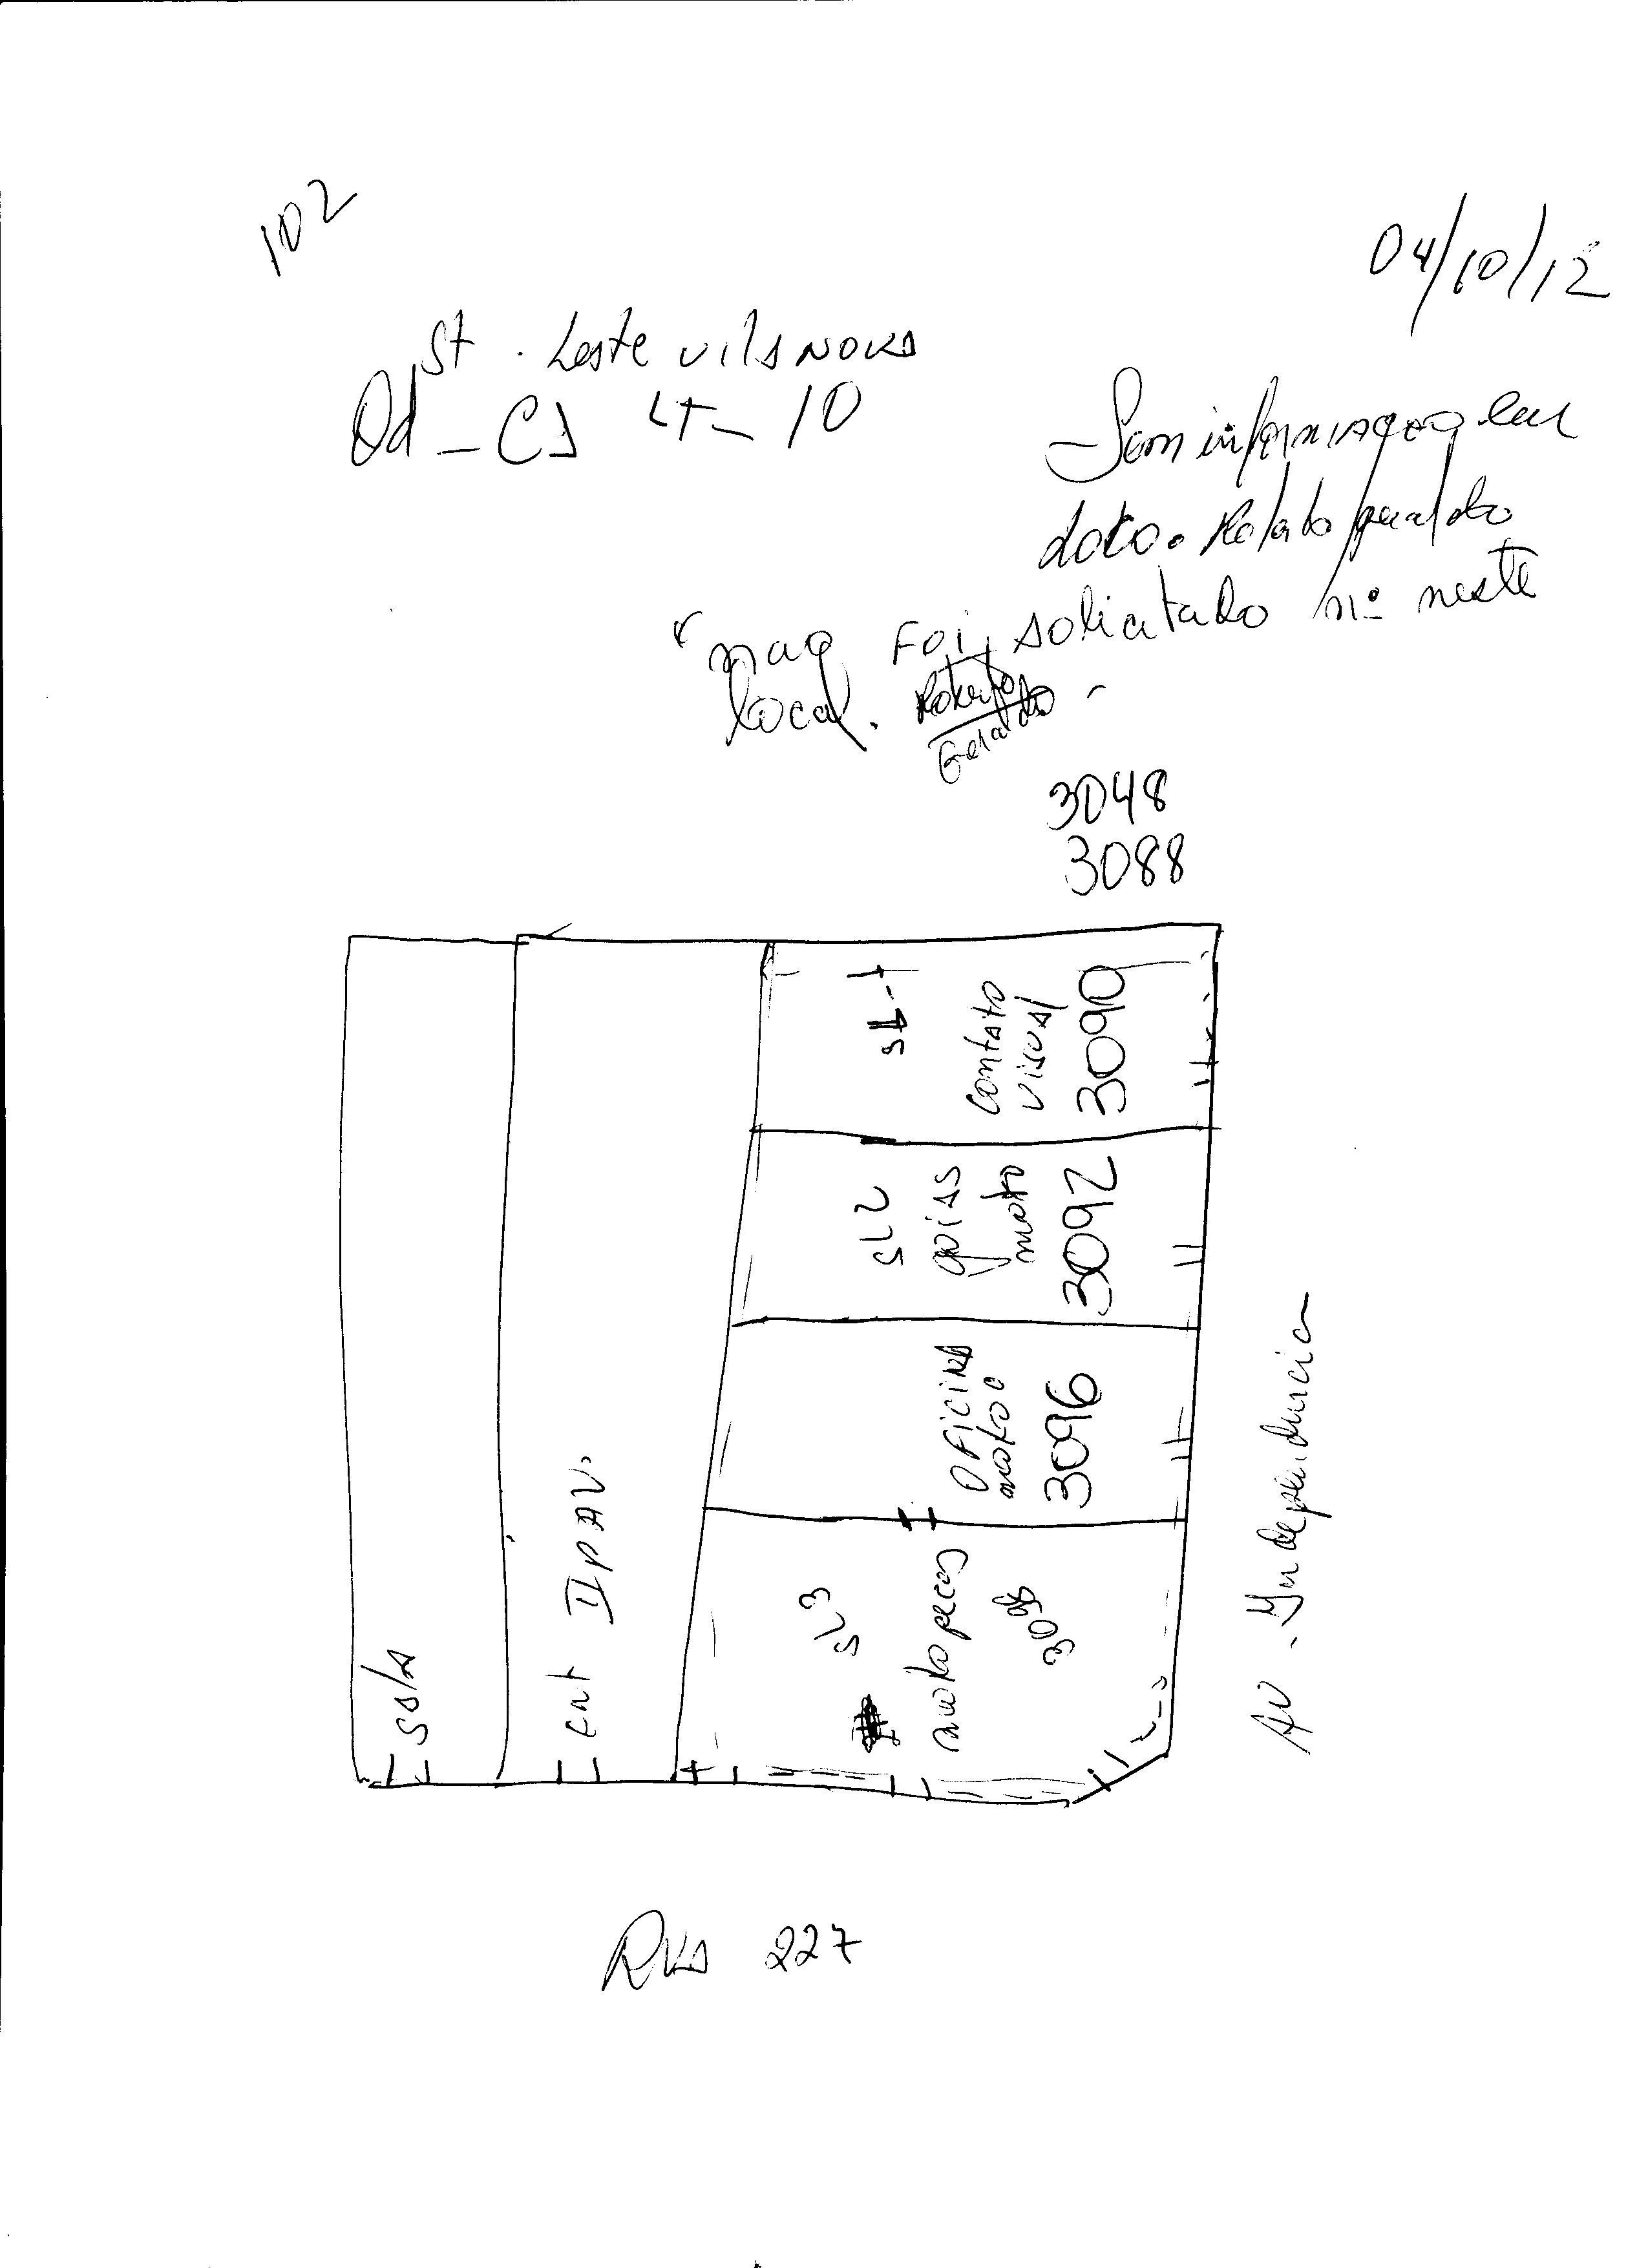 102
04/10/12
St. Leste Vila Nova
Qd - C1 LT - 10
Sem informação em
loco. Relato geraldo
não Foi solicitado nº neste
local. Roberto
Geraldo
3048
3088
SL-1
contato
visual
3090
SL2
goiás
moto
3092
OFICINA
moto
3096
SL3
moto pecas
3098
sala
Ent II PAV.
AV. Independencia
RUA 227